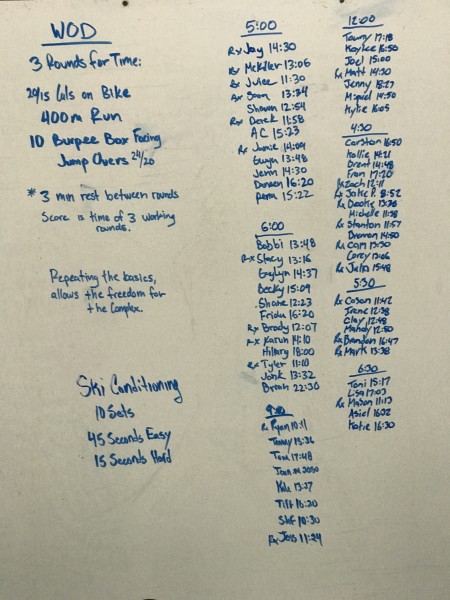 WOD
3 Rounds for Time:
20/15 Cals on Bike
400m Run
10 Burpee Box Facing
Jump Overs 24/20
* 3 min rest between rounds
Score is time of 3 working
rounds.
Repeating the basics,
allows the freedom for
the Complex.
Ski Conditioning
10 Sets
45 Seconds Easy
15 Seconds Hard
5:00
Rx Jay 14:30
Rx McKiller 13:06
Rx Julee 11:30
Rx Sean 13:34
Shawn 12:54
Rx Derek 11:58
AC 15:23
Rx Jamie 14:09
Gwyn 13:48
Jenn 14:30
Doreen 16:20
Perm 15:22
6:00
Bobbi 13:48
Rx Stacy 13:16
Gaylyn 14:37
Becky 15:09
Shane 12:23
Frida 16:20
Rx Brady 12:07
Rx Karin 14:10
Hillary 18:00
Rx Tyler 11:10
Jank 13:32
Brian 22:30
9:30
Rx Ryan 10:11
Tammy 13:36
Tom 17:48
Joan 20:50
Kyle 13:27
Tiff 16:20
Stef 10:30
Rx Joss 11:24
12:00
Tawny 17:18
Kaylee 16:50
Joel 15:00
Rx Matt 14:30
Jenny 18:27
Miguel 14:50
Kylie 16:05
4:30
Carston 16:50
Kallie 14:21
Brent 14:48
Fran 17:20
Rx Zach 12:11
Rx Jake P. 8:52
Rx Dookie 13:28
Michelle 11:38
Rx Stanton 11:57
Dranen 14:50
Rx Cam 13:30
Corey 13:06
Rx Julia 15:48
5:30
Rx Cason 11:42
Irene 12:38
Clay 12:48
Mandy 12:50
Rx Brandon 16:47
Rx Mark 13:38
6:30
Toni 15:17
Lisa 17:03
Rx Mason 11:13
Asiel 16:02
Katie 16:30